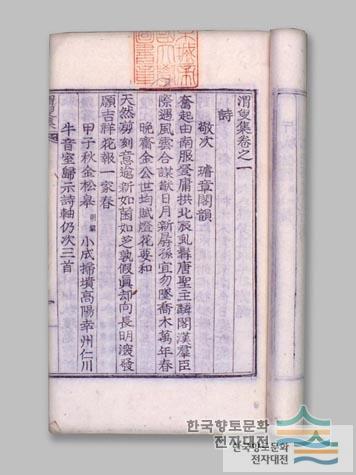 渭叟集卷之一
詩
敬次 璿章閣韻
奮起由南服登庸拱北辰虬髥唐聖主麟閣漢羣臣
際遇風雲合謀猷日月新屛孫宜勿墜喬木萬年春
晚齋金公世均賦燈花要和
天然剪刻意逾新如菌如芝孰假眞却向長明滾發
願吉祥花報一家春
甲子秋金松皋 小成掃墳高陽幸州仁川
牛音室歸示詩軸仍次三首
한국향토문화
전자대전
한국향토문화
전자대전